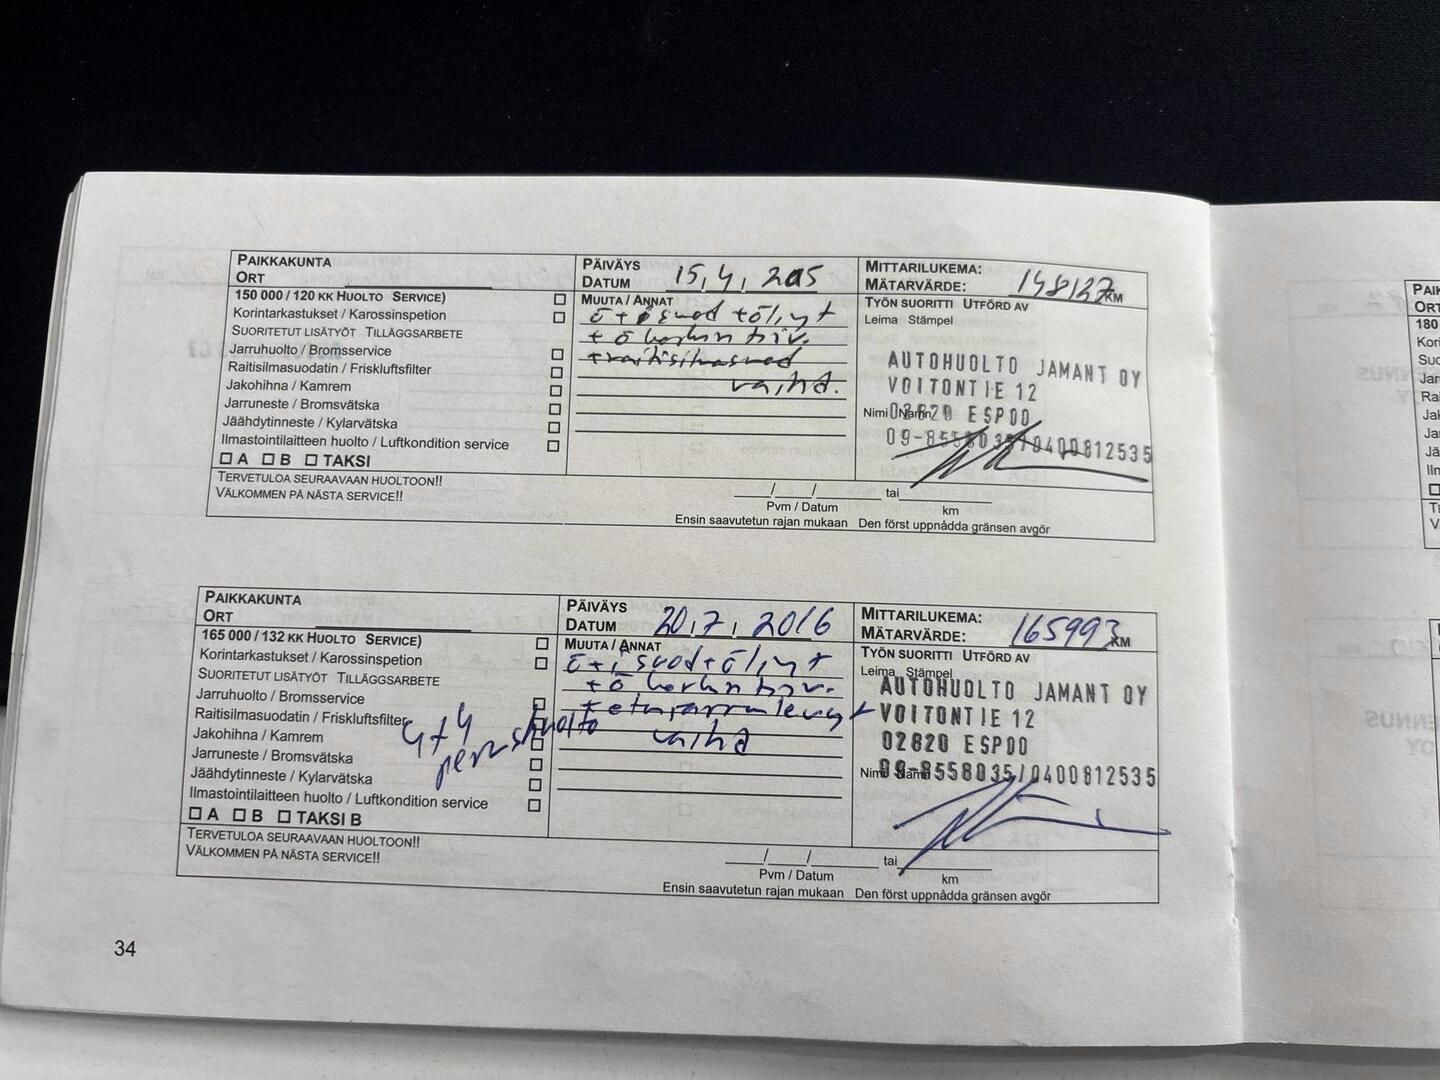 PAIKKAKUNTA
ORT
PÄIVÄYS
DATUM 15,4, 2015
MITTARILUKEMA:
MÄTARVÄRDE: 148127 KM
150 000 / 120 KK HUOLTO SERVICE)
Korintarkastukset / Karossinspetion
SUORITETUT LISÄTYÖT TILLÄGGSARBETE
Jarruhuolto / Bromsservice
Raitisilmasuodatin / Friskluftsfilter
Jakohihna / Kamrem
Jarruneste / Bromsvätska
Jäähdytinneste / Kylarvätska
Ilmastointilaitteen huolto / Luftkondition service
A B TAKSI
MUUTA / ANNAT
ö+i suod+öljyt
+ö
+raitisilmasuod
vaihd.
TYÖN SUORITTI UTFÖRD AV
Leima Stämpel
AUTOHUOLTO JAMANT OY
VOITONTIE 12
Nimi Namn
02620 ESPOO
09-8558035/0400812535
TERVETULOA SEURAAVAAN HUOLTOON!!
VÄLKOMMEN PÅ NÄSTA SERVICE!!
/ / tai
Pvm / Datum km
Ensin saavutetun rajan mukaan Den först uppnådda gränsen avgör
PAIKKAKUNTA
ORT
PÄIVÄYS
DATUM 20,7, 2016
MITTARILUKEMA:
MÄTARVÄRDE: 165993 KM
165 000 / 132 KK HUOLTO SERVICE)
Korintarkastukset / Karossinspetion
SUORITETUT LISÄTYÖT TILLÄGGSARBETE
Jarruhuolto / Bromsservice
Raitisilmasuodatin / Friskluftsfilter
Jakohihna / Kamrem
Jarruneste / Bromsvätska
Jäähdytinneste / Kylarvätska
Ilmastointilaitteen huolto / Luftkondition service
A B TAKSI B
4+4
perushuolto
MUUTA / ANNAT
ö+i suod+öljyt
+ö
+etujarrulevyt
vaihd
TYÖN SUORITTI UTFÖRD AV
Leima Stämpel
AUTOHUOLTO JAMANT OY
VOITONTIE 12
02620 ESPOO
Nimi Namn
09-8558035/0400812535
TERVETULOA SEURAAVAAN HUOLTOON!!
VÄLKOMMEN PÅ NÄSTA SERVICE!!
/ / tai
Pvm / Datum km
Ensin saavutetun rajan mukaan Den först uppnådda gränsen avgör
34